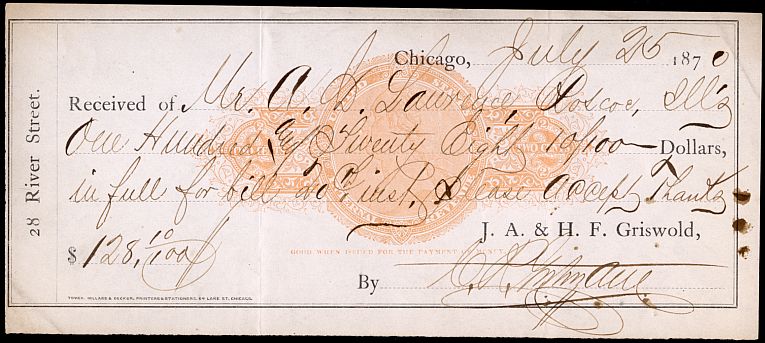 28 River Street.
Chicago, July 25 1870
Received of Mr. A. D. Lawrence, Roscoe, Ill's
One Hundred & Twenty Eight 10/100 Dollars,
in full for bill inst, Please accept Thanks
J. A. & H. F. Griswold,
$128,10/100
GOOD WHEN ISSUED FOR THE PAYMENT OF MONEY
By
TOWER, MILLARD & DECKER, PRINTERS & STATIONERS, 64 LAKE ST. CHICAGO.